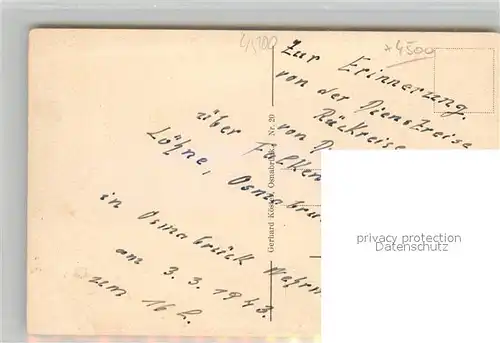 4500
* 4500
Zur Erinnerung
von der Dienstreise
von D
Rückreise
über Falken
Löhne, Osnabrü
in Osnabrück
am 3.3.1943.
zum 16 h.
Gerhard Köster, Osnabrück. Nr. 20
privacy protection
Datenschutz